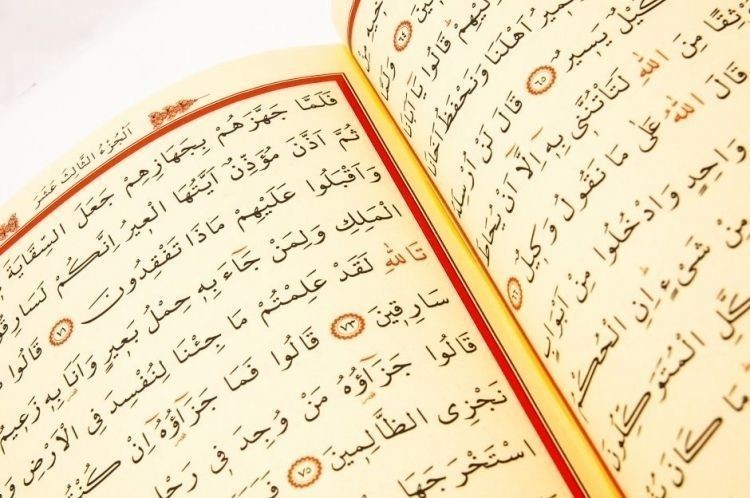 اِلَيْهِمْ قَالُوا يَٓا اَبَانَا
اَهْلَنَا وَنَحْفَظُ اَخَانَا
كَيْلٌ يَس۪يرٌ ﴿٦٥﴾ قَالَ لَنْ اُرْسِلَهُ
مِنَ اللّٰهِ لَتَأْتُنَّن۪ي بِه۪ٓ اِلَّٓا اَنْ يُحَاطَ
قَالَ اللّٰهُ عَلٰى مَا نَقُولُ وَك۪يلٌ ﴿٦٦﴾
وَاحِدٍ وَادْخُلُوا مِنْ اَبْوَابٍ
مِنْ شَيْءٍ اِنِ الْحُكْمُ
الْمُتَوَكِّلُونَ
مَا كَانَ
اَلْجُزْءُ الثَّالِثَ عَشَرَ
فَلَمَّا جَهَّزَهُمْ بِجَهَازِهِمْ جَعَلَ السِّقَايَةَ
ثُمَّ اَذَّنَ مُؤَذِّنٌ اَيَّتُهَا الْع۪يرُ اِنَّكُمْ لَسَارِقُونَ
وَاَقْبَلُوا عَلَيْهِمْ مَاذَا تَفْقِدُونَ ﴿٧١﴾ قَالُوا
الْمَلِكِ وَلِمَنْ جَٓاءَ بِه۪ حِمْلُ بَع۪يرٍ وَاَنَا بِه۪ زَع۪يمٌ
تَاللّٰهِ لَقَدْ عَلِمْتُمْ مَا جِئْنَا لِنُفْسِدَ فِي الْاَرْضِ
سَارِق۪ينَ ﴿٧٣﴾ قَالُوا فَمَا جَزَٓاؤُهُٓ اِنْ كُنْتُمْ
قَالُوا جَزَٓاؤُهُ مَنْ وُجِدَ ف۪ي رَحْلِ
نَجْزِي الظَّالِم۪ينَ ﴿٧٥﴾
اسْتَخْرَجَهَا